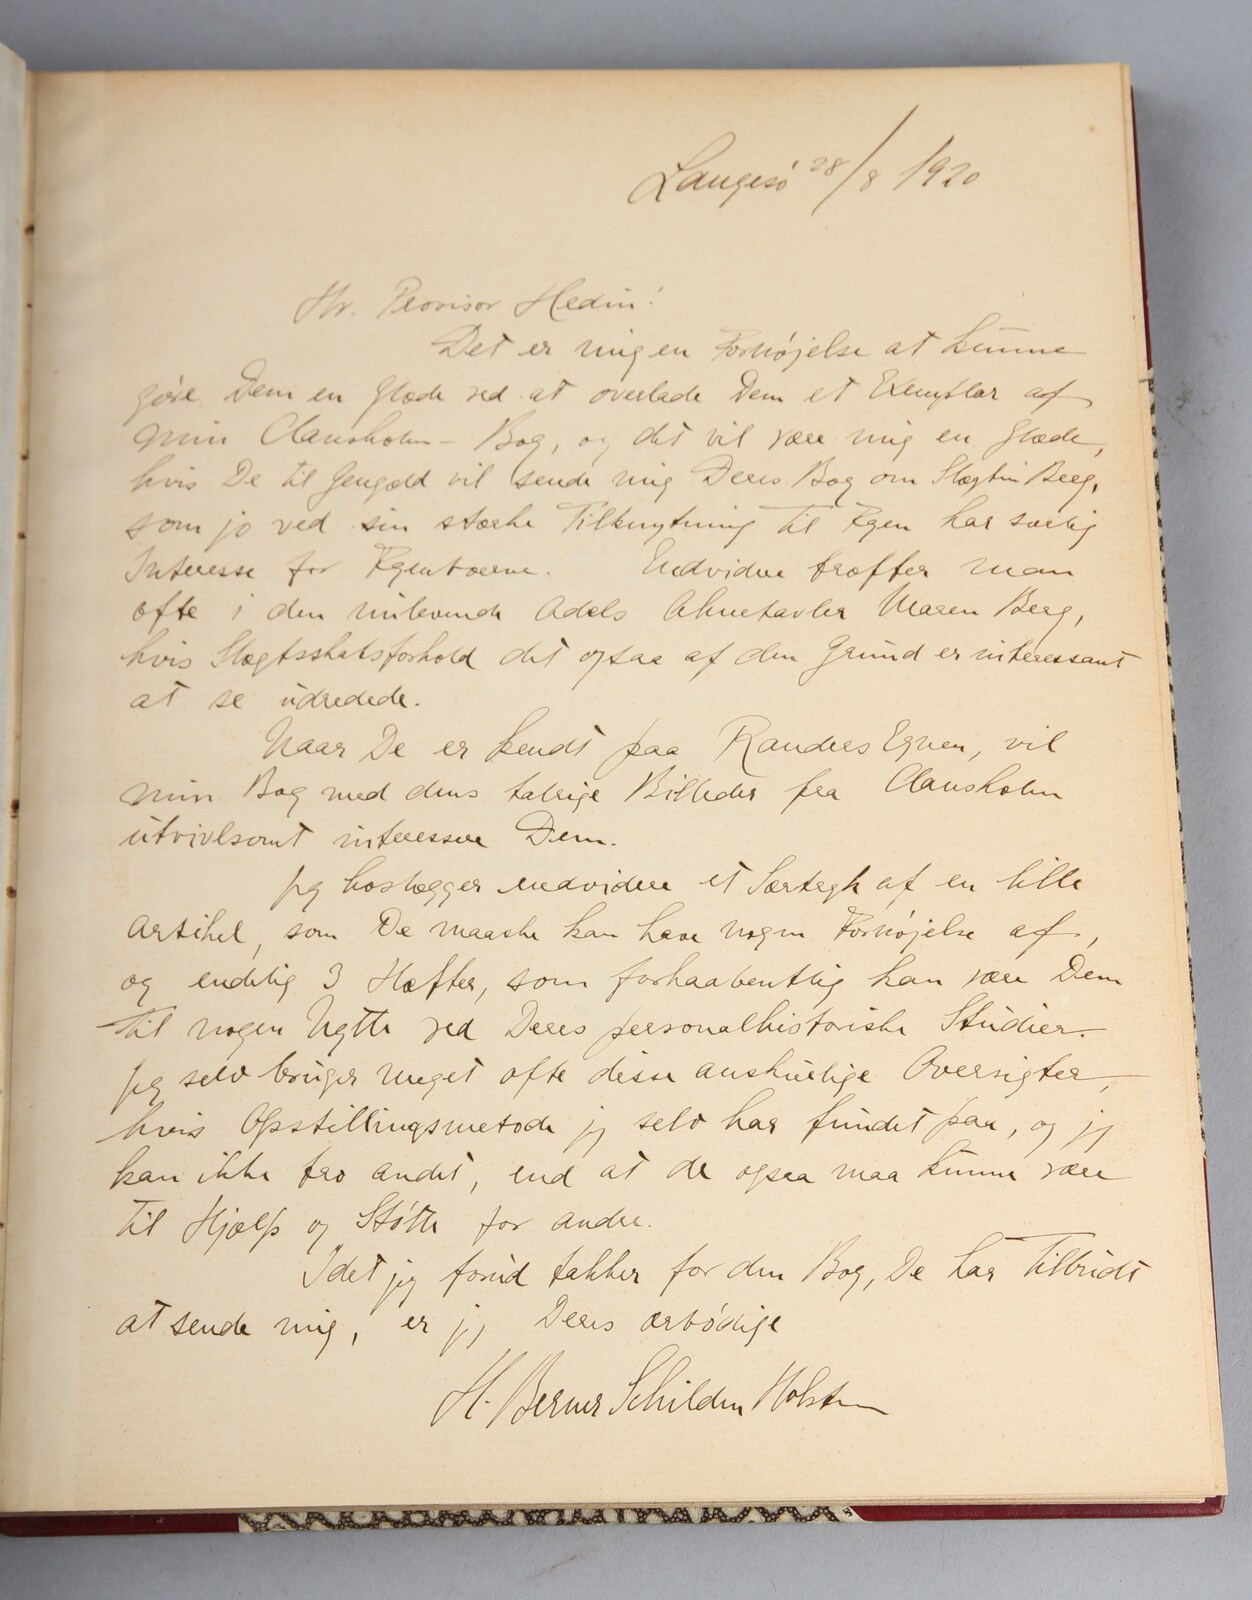 Langesö 28/8 1920
Hr. Provisor Hedin!
Det er mig en Fornøjelse at kunne
gøre Dem en Glæde ved at overlade Dem et Exemplar af
min Clausholm-Bog, og det vil være mig en Glæde,
hvis De til Gengæld vil sende mig Deres Bog om Slægten Berg,
som jo ved sin stærke Tilknytning til Fyen har særlig
Interesse for Fyenboerne. Endvidere træffer man
ofte i den nulevende Adels Ahnetavler Maren Berg,
hvis Slægtsskabsforhold det ogsaa af den Grund er interessant
at se udredede.
Naar De er kendt paa Randers Egnen, vil
min Bog med dens talrige Billeder fra Clausholm
utvivlsomt interessere Dem.
Jeg hoslægger endvidere et Særtryk af en lille
Artikel, som De maaske kan have nogen Fornøjelse af,
og endelig 3 Hæfter, som forhaabentlig kan være Dem
til nogen Nytte ved Deres personalhistoriske Studier.
Jeg selv bruger meget ofte disse anskuelige Oversigter,
hvis Opstillingsmetode jeg selv har fundet paa, og jeg
kan ikke tro andet, end at de ogsaa maa kunne være
til Hjælp og Støtte for andre.
Idet jeg forud takker for den Bog, De har tilbudt
at sende mig, er jeg Deres ærbødige
H. Berner Schilden Holsten